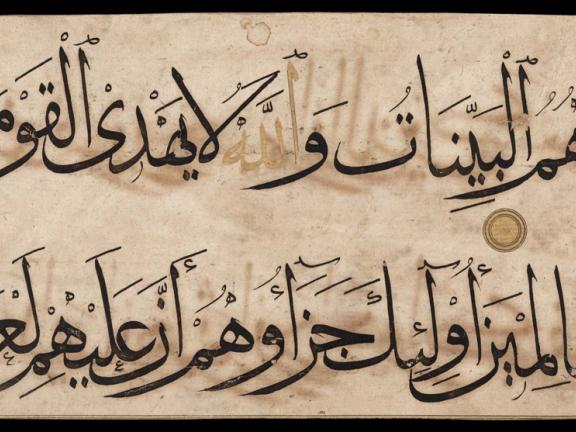 هُمُ ٱلْبَيِّنَاتُ وَٱللَّهُ لَا يَهْدِى ٱلْقَوْمَ
ٱلظَّالِمِينَ أُوْلَٰٓئِكَ جَزَآؤُهُمْ أَنَّ عَلَيْهِمْ لَعْ